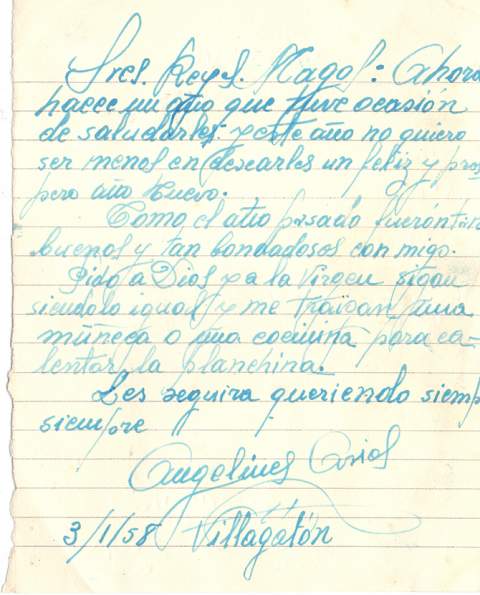 Sres. Reyes. Magos: Ahora
hacee un año que tuve ocasión
de saludarles: y este año no quiero
ser menos en desearles un feliz y pros
pero año nuevo.
Como el año pasado fuerón tan
buenos y tan bondadosos con migo.
Pido a Dios y a la Virgen sigan
siendolo igual y me traigan una
muñeca o una cocinita para ca-
lentar la planchina.
Les seguira queriendo siemp
siempre
Angelines Arias
3/1/58 Villagatón